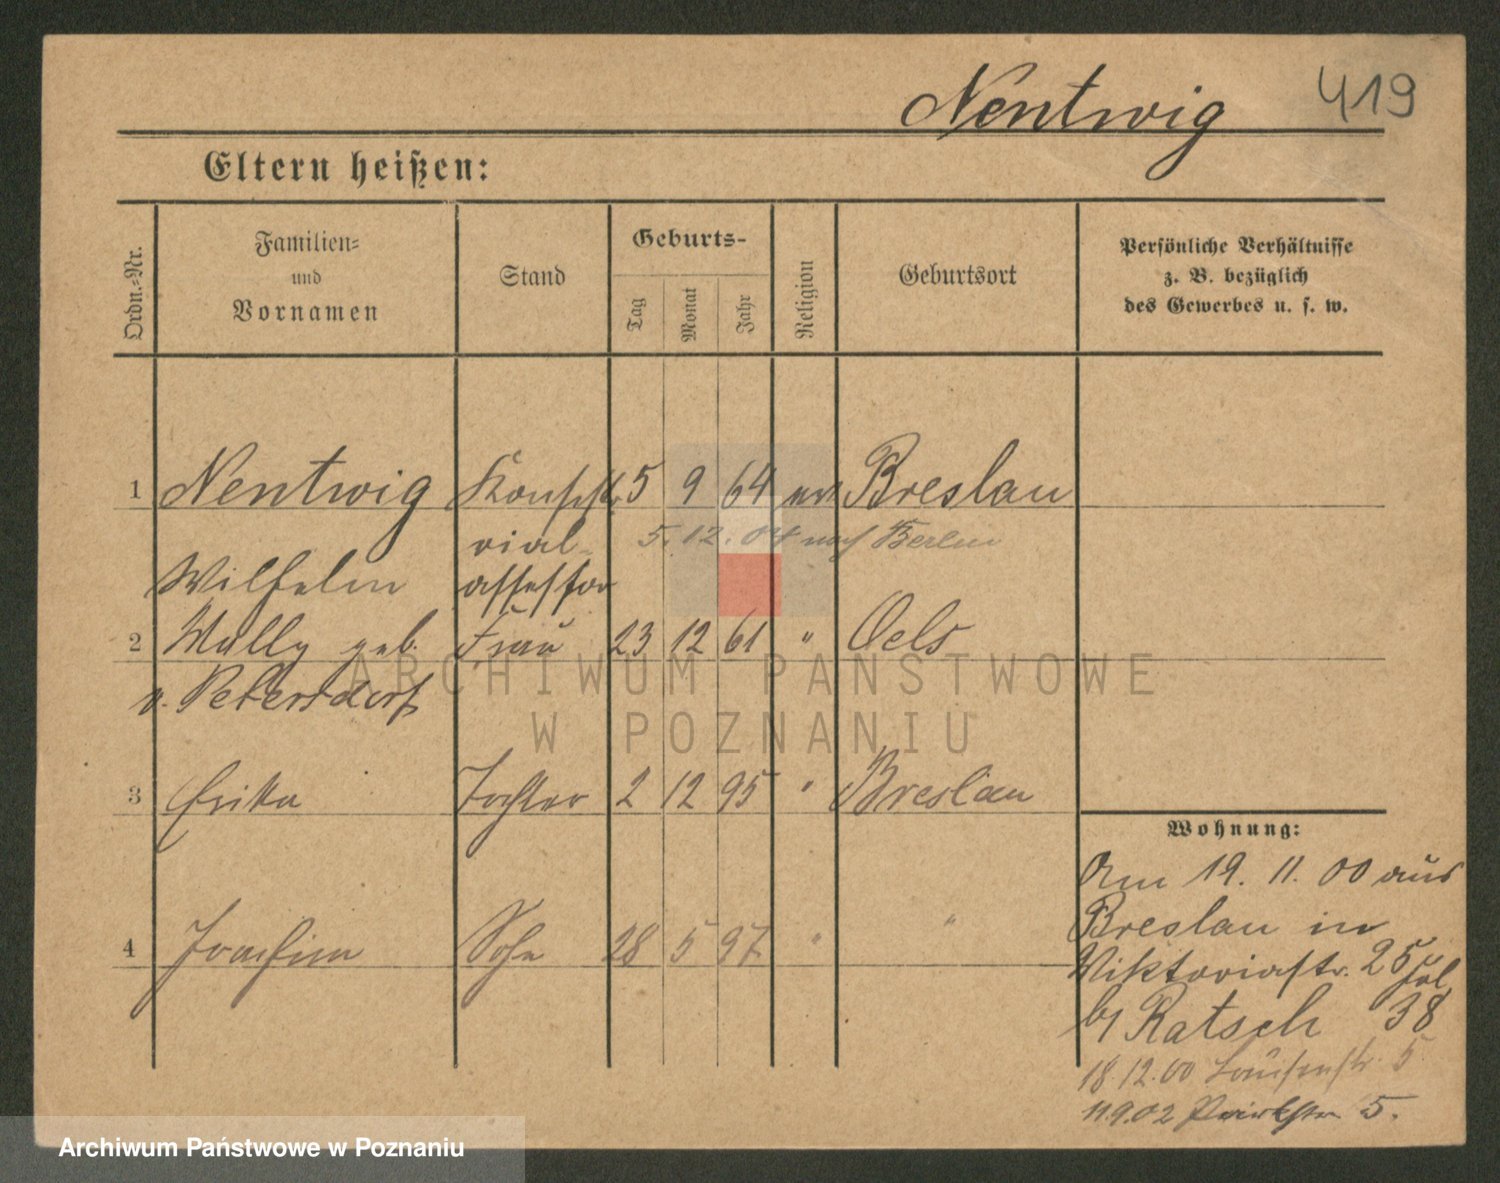 Nentwig 419
Eltern heißen:
Ordn.-Nr.
Familien-
und
Vornamen
Stand
Geburts-
Tag
Monat
Jahr
Religion
Geburtsort
Persönliche Verhältnisse
z. B. bezüglich
des Gewerbes u. s. w.
1 Nentwig Konsisto 5 9 64 Breslau
rial- 5. 12. 04 nach Berlin
Wilhelm assessor
2 Wally geb. Frau 23 12 61 " Oels
v. Petersdorf
3 Erika Tochter 2 12 95 " Breslau
4 Joachim Sohn 28 5 97 " "
Wohnung:
Am 19. 11. 00 aus
Breslau in
Viktoriastr. 25
b/ Ratsch 38
18.12.00 Louisenstr. 5
11.9.02 Parkstr. 5.
ARCHIWUM PAŃSTWOWE
W POZNANIU
Archiwum Państwowe w Poznaniu